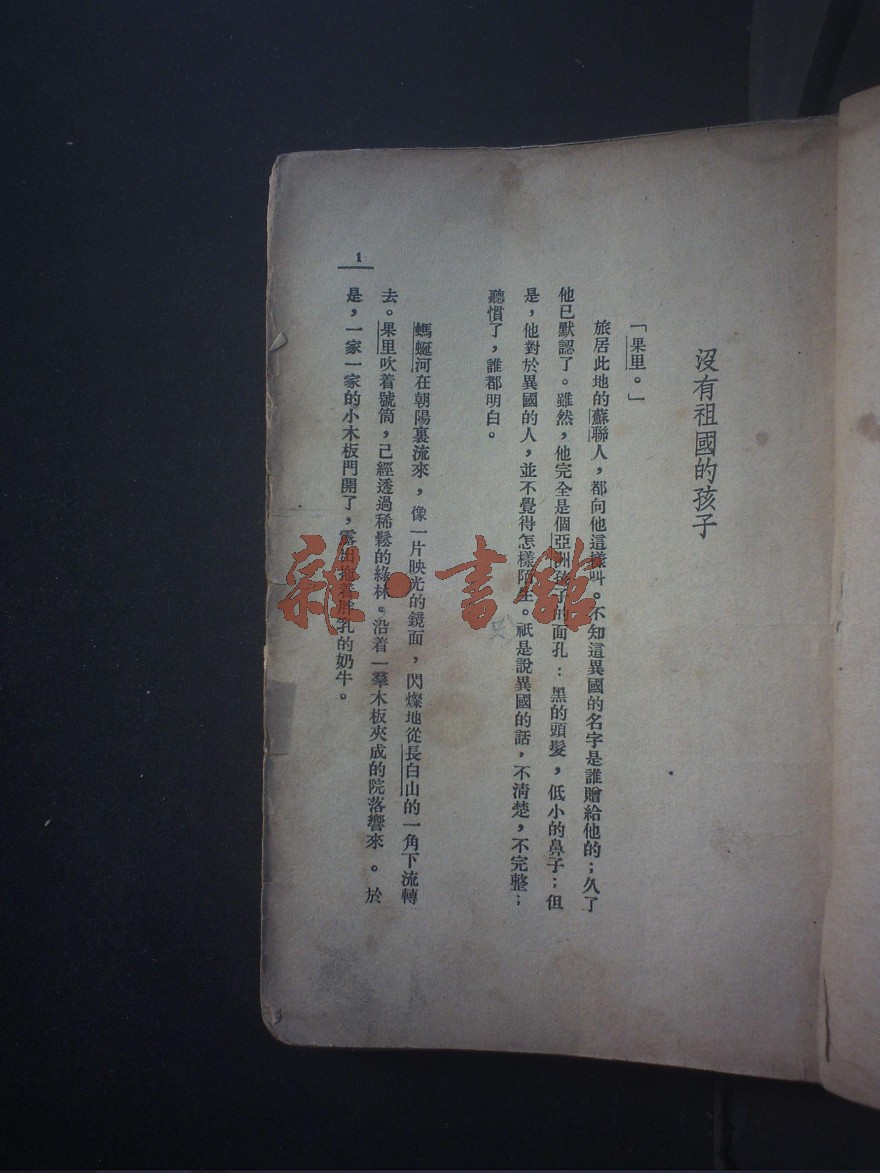 沒有祖國的孩子
「果里。」
旅居此地的蘇聯人，都向他這樣叫。不知這異國的名字是誰贈給他的；久了
他已默認了。雖然，他完全是個亞洲孩子的面孔：黑的頭髮，低小的鼻子；但
是，他對於異國的人，並不覺得怎樣陌生。祇是說異國的話，不清楚，不完整；
聽慣了，誰都明白。
螞蜒河在朝陽裏流來，像一片映光的鏡面，閃燦地從長白山的一角下流轉
去。果里吹着號筒，已經透過稀鬆的綠林。沿着一羣木板夾成的院落響來。於
是，一家一家的小木板門開了，露出拖着胖乳的奶牛。
1
雜·書館